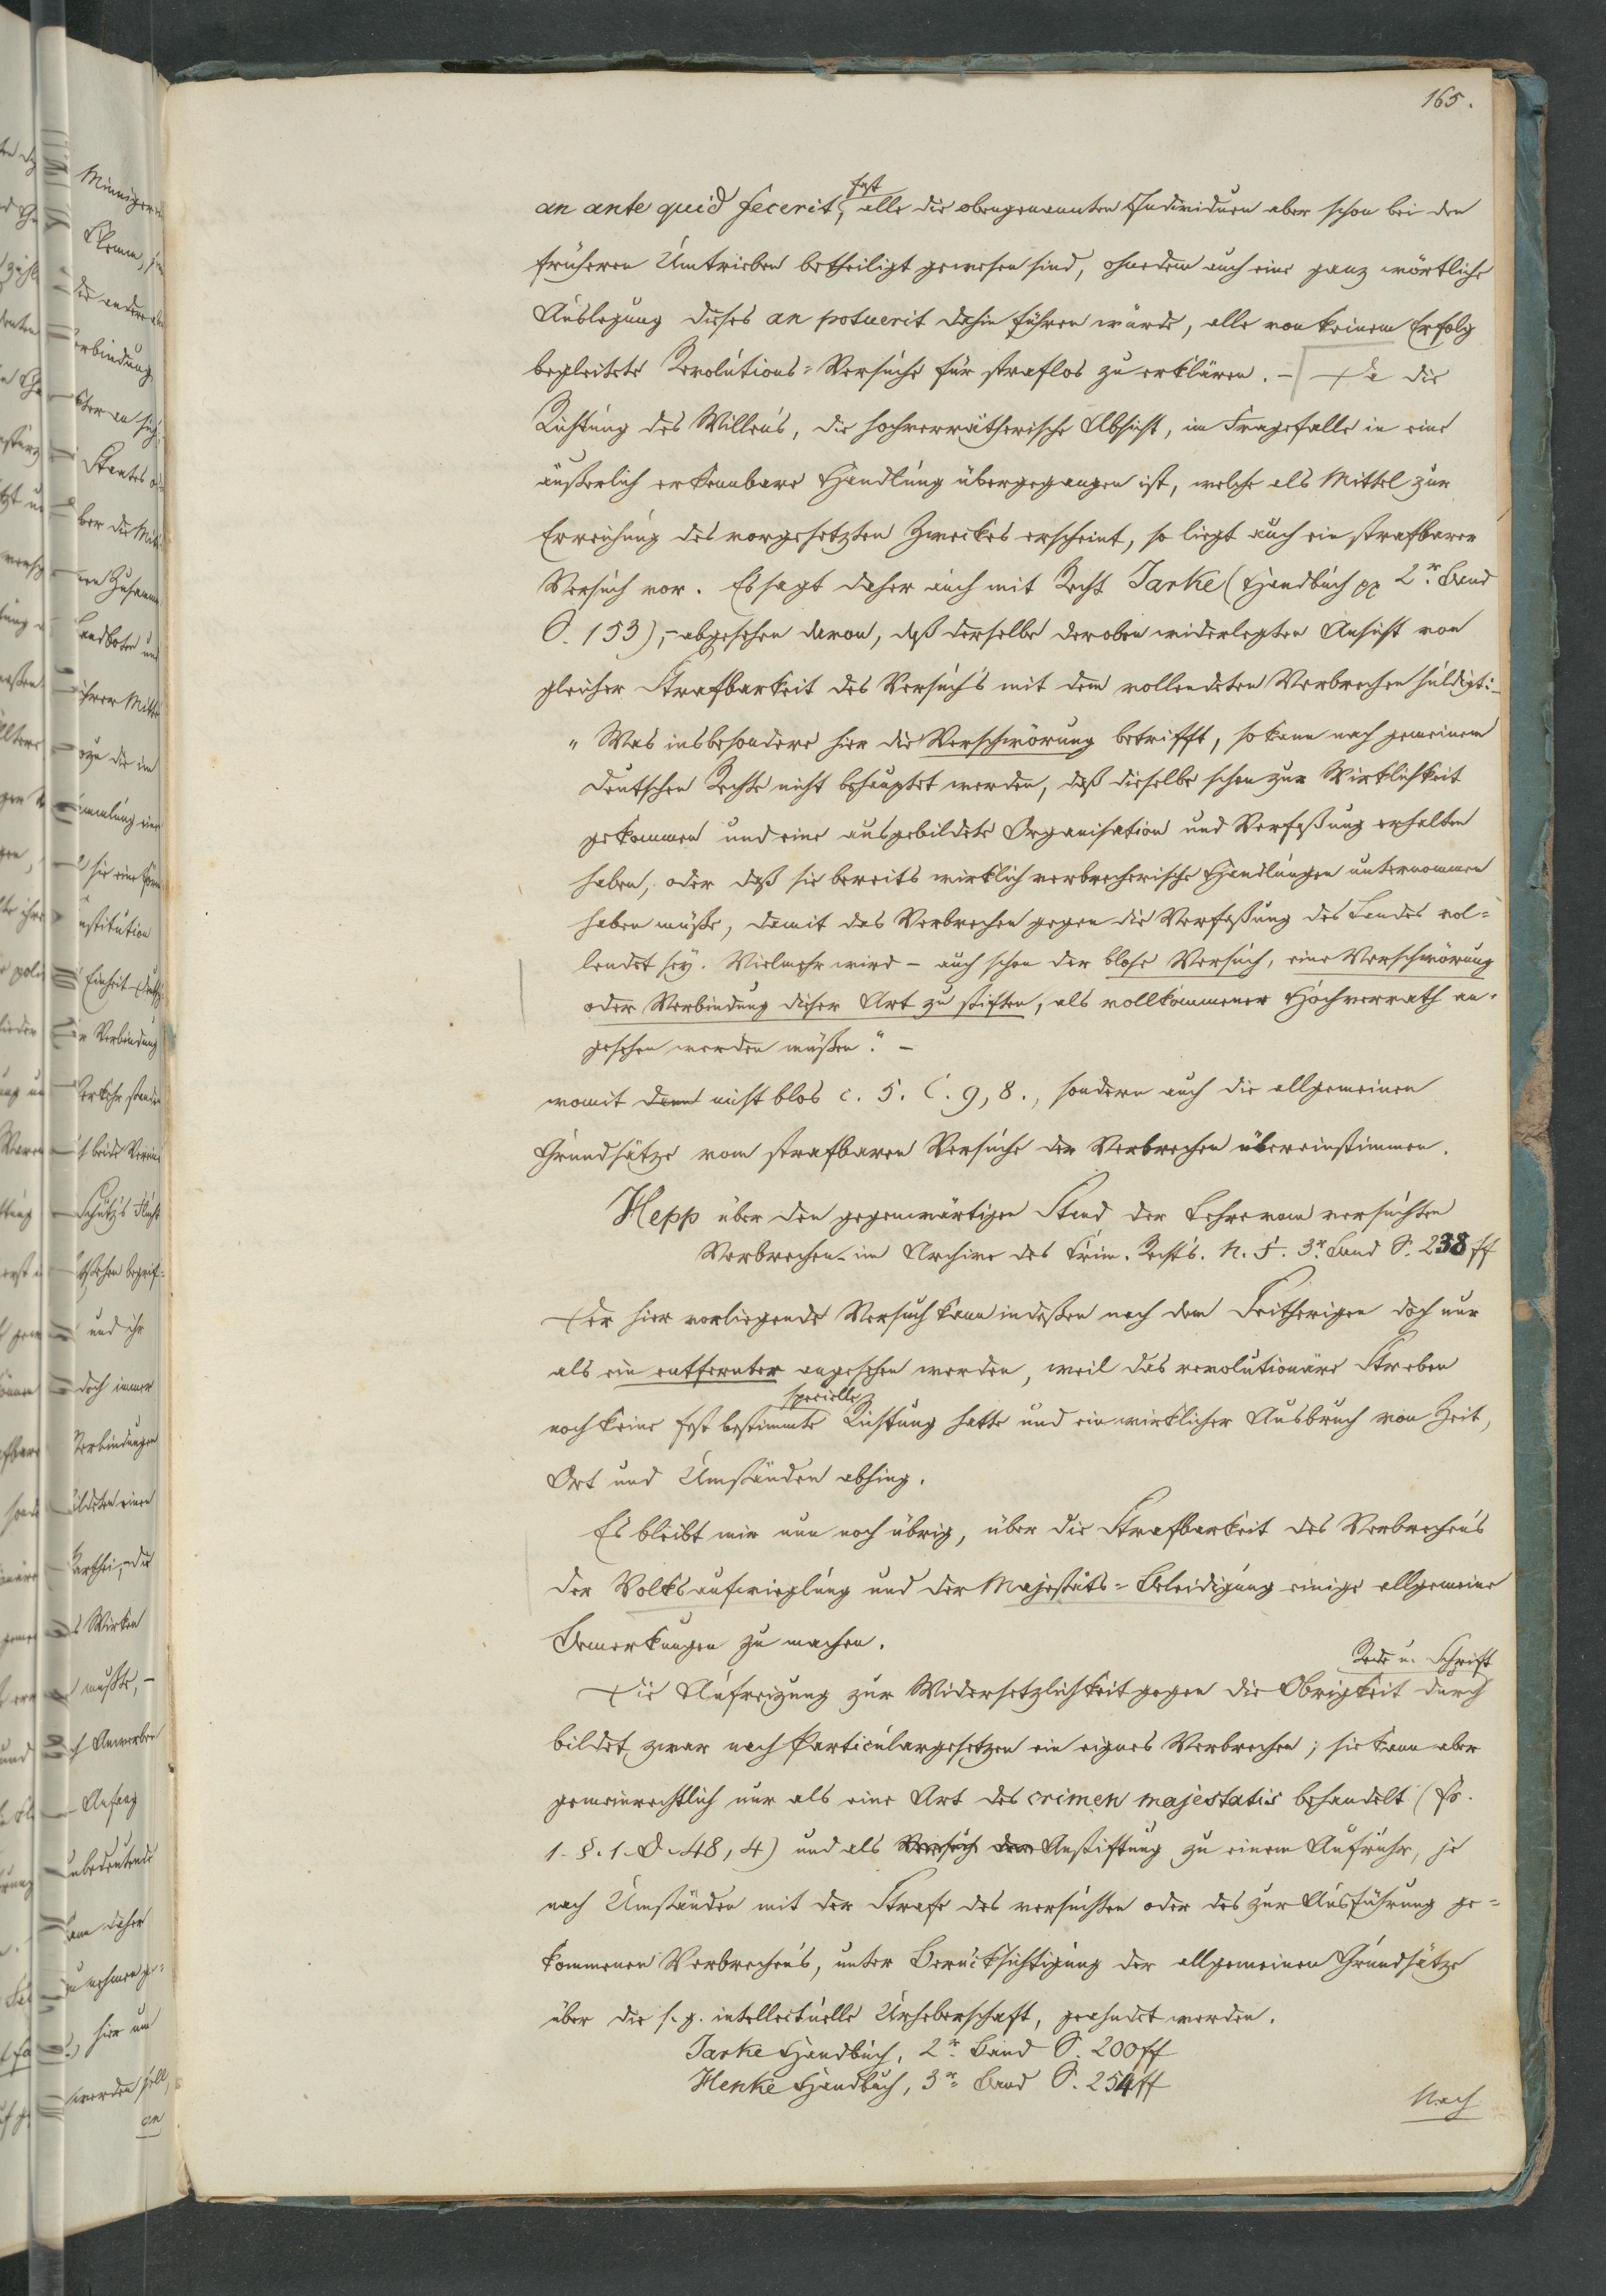 165.
fast
an ante quid fecerit, alle die obengenannten Individuen aber schon bei den
früheren Umtrieben betheiligt gewesen sind, ohnedem auch eine ganz wörtliche
Auslegung dieses an potuerit dahin führen würde, alle von keinem Erfolg
begleitete Revolutions-Versuche für straflos zu erklären. – Da die
Richtung des Willens, die hochverrätherische Absicht, im Fragefalle in eine
äußerlich erkennbare Handlung übergegangen ist, welche als Mittel zur
Erreichung des vorgesetzten Zweckes erscheint, so liegt auch ein strafbarer
Versuch vor. Es sagt daher auch mit Recht Jarke (Handbuch pp 2r. Band
S. 153), – abgesehen davon, daß derselbe der oben widerlegten Ansicht von
gleicher Strafbarkeit des Versuchs mit dem vollendeten Verbrechen huldigt: –
„Was insbesondere hier die Verschwörung betrifft, so kann nach gemeinem
deutschen Rechte nicht behauptet werden, daß dieselbe schon zur Wirklichkeit
gekommen und eine ausgebildete Organisation und Verfaßung erhalten
haben, oder daß sie bereits wirklich verbrecherische Handlungen unternommen
haben müße, damit das Verbrechen gegen die Verfaßung des Landes vol-
lendet sey. Vielmehr wird – auch schon der blose Versuch, eine Verschwörung
oder Verbindung dieser Art zu stiften, als vollkommener Hochverrath an-
gesehen werden müßen." –
womit denn nicht blos c. 5. C. 9, 8., sondern auch die allgemeinen
Grundsätze vom strafbaren Versuche der Verbrechen übereinstimmen.
Hepp über den gegenwärtigen Stand der Lehre vom versuchten
Verbrechen im Archive des Crim. Rechts. N. F. 3r. Band S. 238 ff
Der hier vorliegende Versuch kann indeßen nach dem Seitherigen doch nur
als ein entfernter angesehen werden, weil das revolutionäre Streben
specielle
noch keine fest bestimmte Richtung hatte und ein wirklicher Ausbruch von Zeit,
Ort und Umständen abhing.
Es bleibt mir nun noch übrig, über die Strafbarkeit des Verbrechens
der Volksaufwieglung und der Majestäts-Beleidigung einige allgemeine
Bemerkungen zu machen.
Rede u. Schrift
Die Aufreizung zur Widersetzlichkeit gegen die Obrigkeit durch
bildet zwar nach Particulargesetzen ein eignes Verbrechen; sie kann aber
gemeinrechtlich nur als eine Art des crimen majestatis behandelt (fr.
1. §. 1. D. 48, 4) und als Versuch der Anstiftung zu einem Aufruhr, je
nach Umständen mit der Strafe des versuchten oder des zur Ausführung ge-
kommenen Verbrechens, unter Berücksichtigung der allgemeinen Grundsätze
über die s. g. intellectuelle Urheberschaft, geahndet werden.
Jarke Handbuch, 2r. Band S. 200 ff
Henke Handbuch, 3r. Band S. 254 ff
Nach